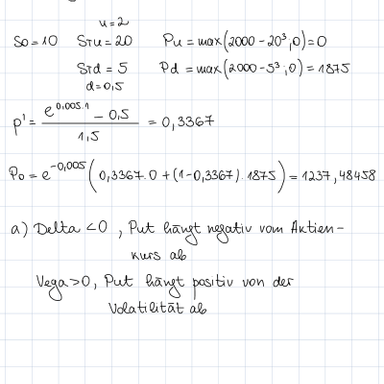 u=2
S0=10 STu=20 Pu=max(2000-20³,0)=0
STd=5 Pd=max(2000-5³,0)=1875
d=0,5
p'= (e^0,005·1 - 0,5) / 1,5 = 0,3367
P0=e^-0,005 (0,3367·0+(1-0,3367)·1875)=1237,48458
a) Delta <0, Put hängt negativ vom Aktien-
kurs ab
Vega>0, Put hängt positiv von der
Volatilität ab